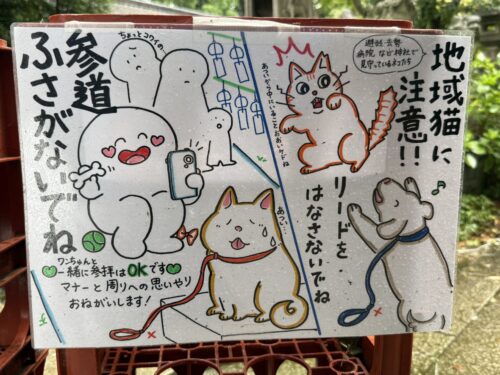 地域猫に
注意!!
避妊・去勢
病院など神社で
見守っているネコたち
リードを
はなさないでね
参道
ふさがないでね
ちょっとコワイの…
あついから中にいることもおおいかもね
あつ…
ワンちゃんと
一緒に参拝はOKです
マナーと周りへの思いやり
おねがいします!